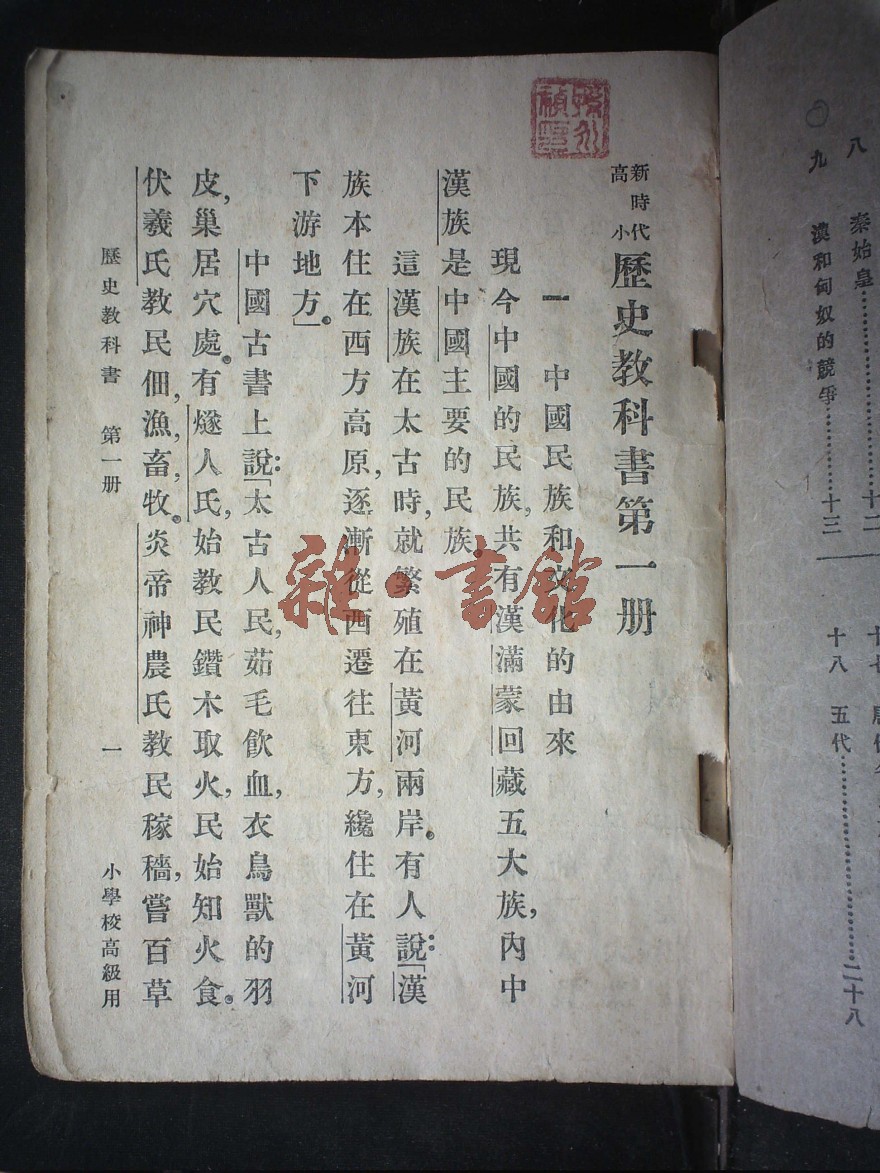 新時代高小歷史教科書第一册
一 中國民族和文化的由來
現今中國的民族,共有漢滿蒙回藏五大族,內中
漢族是中國主要的民族。
這漢族在太古時,就繁殖在黃河兩岸。有人說:「漢
族本住在西方高原,逐漸從西遷往東方,纔住在黃河
下游地方。」
中國古書上說:「太古人民,茹毛飲血,衣鳥獸的羽
皮,巢居穴處。有燧人氏,始教民鑽木取火,民始知火食。
伏羲氏教民佃,漁,畜,牧。炎帝神農氏教民稼穡,嘗百草
歷史教科書 第一册 一 小學校高級用
雜·書館
八 秦始皇……………十二
九 漢和匈奴的競爭…………十三
十八 五代……………………二十八